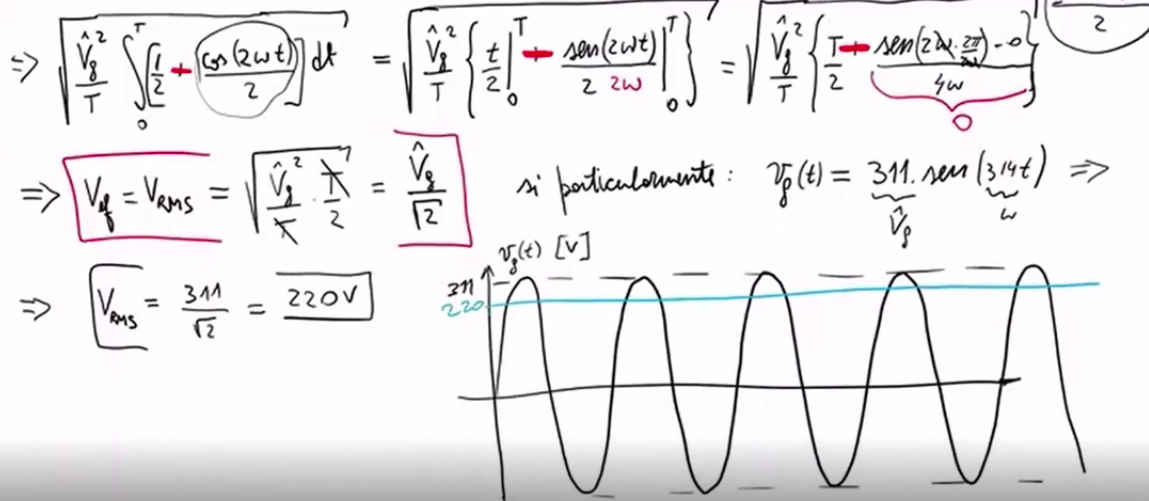 ⇒ √( V̂g²/T ∫₀ᵀ [1/2 + cos(2ωt)/2] dt ) = √( V̂g²/T { t/2 |₀ᵀ + sen(2ωt)/(2 2ω) |₀ᵀ } ) = √( V̂g²/T { T/2 + (sen(2ω·2π/ω) - 0)/4ω } ) 2
0
⇒ Vef = VRMS = √( V̂g²/T · T/2 ) = V̂g/√2 si particularmente: vg(t) = 311. sen(314t) ⇒
V̂g ω
⇒ VRMS = 311/√2 = 220V
vg(t) [V]
311
220